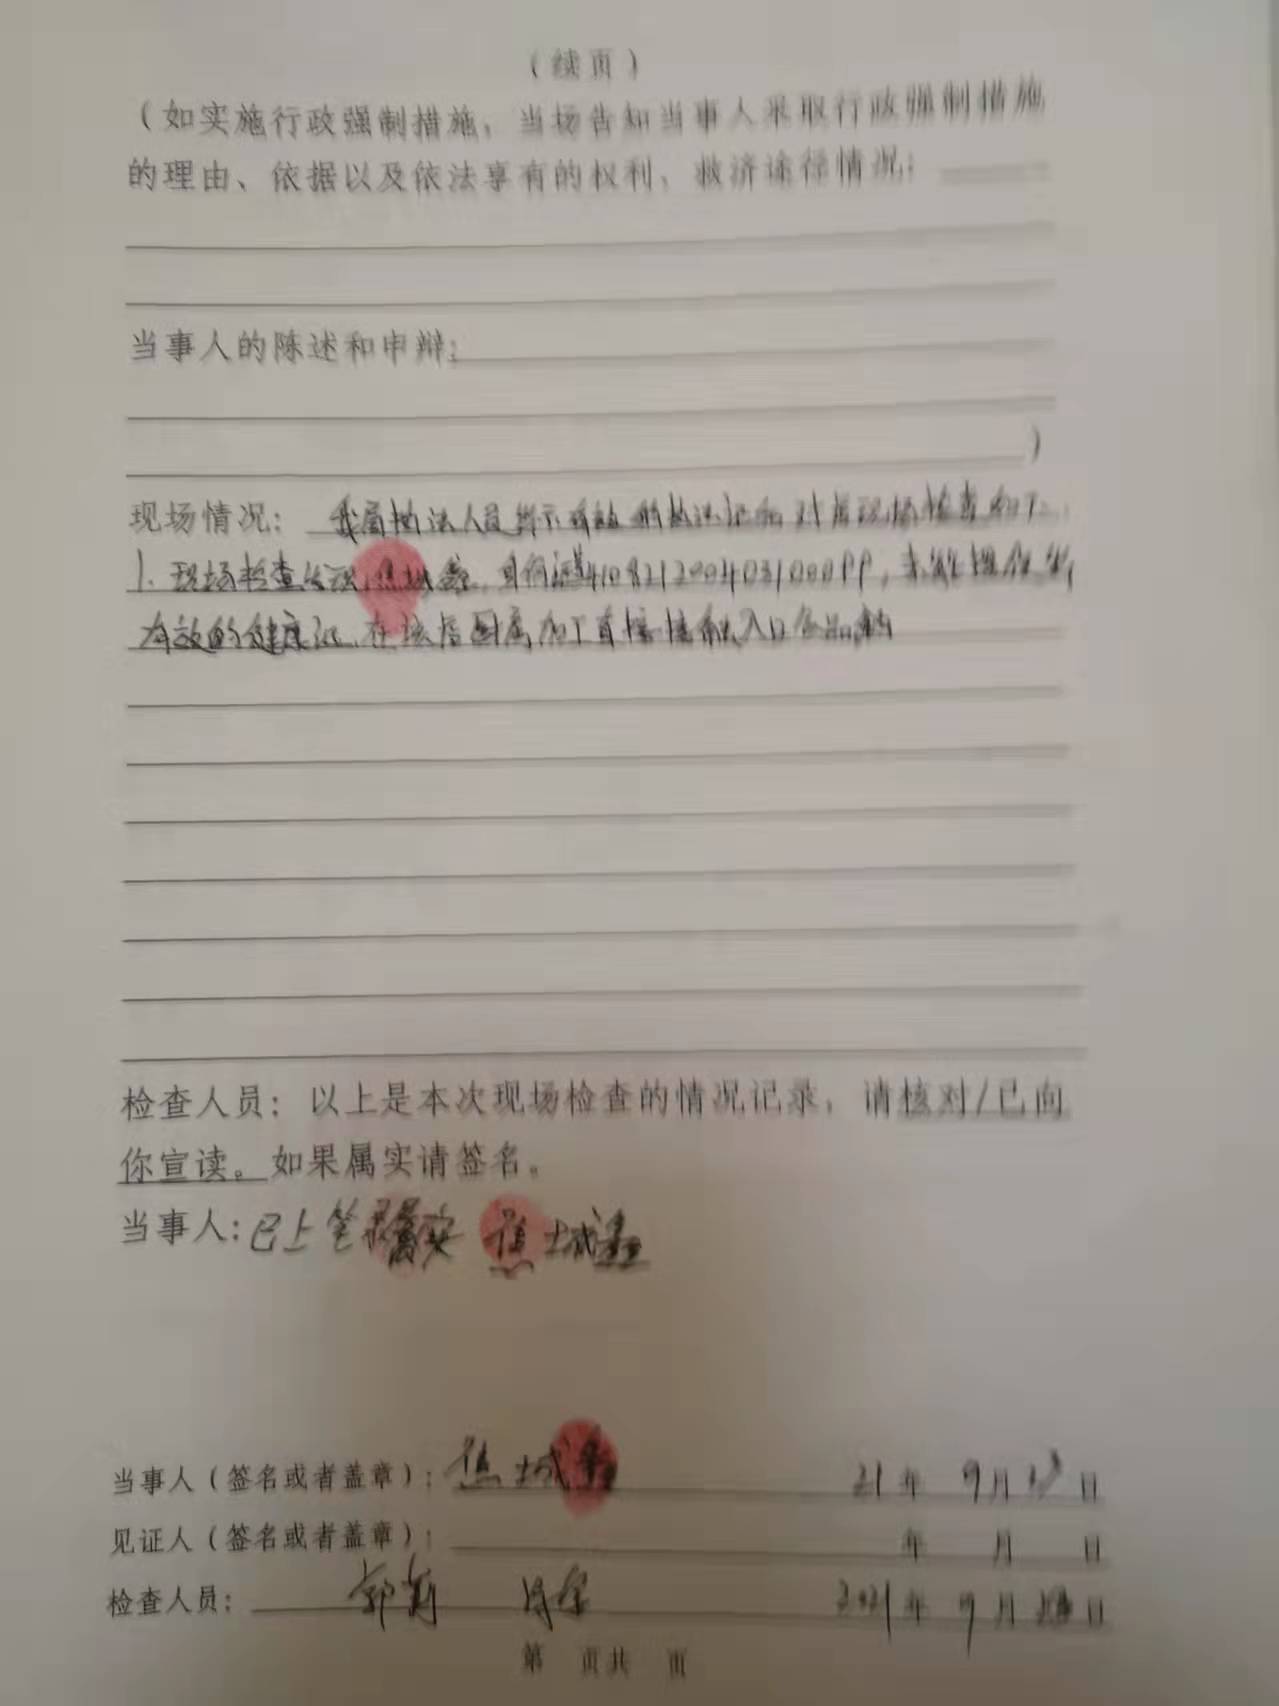 （续页）
（如实施行政强制措施，当场告知当事人采取行政强制措施
的理由、依据以及依法享有的权利、救济途径情况：
当事人的陈述和申辩：
）
现场情况： 我局执法人员出示有效 执法证 对 店现场检查如下:
1. 现场检查发现, 焦城鑫, 身份证 , 未能提供
有效的健康证, 在该店厨房加工直接接触入口食品
检查人员：以上是本次现场检查的情况记录，请核对/已向
你宣读。如果属实请签名。
当事人: 已上笔录属实 焦城鑫
当事人（签名或者盖章）: 焦城鑫 21年 9月 日
见证人（签名或者盖章）: 年 月 日
检查人员: 2021年9月 日
第 页共 页